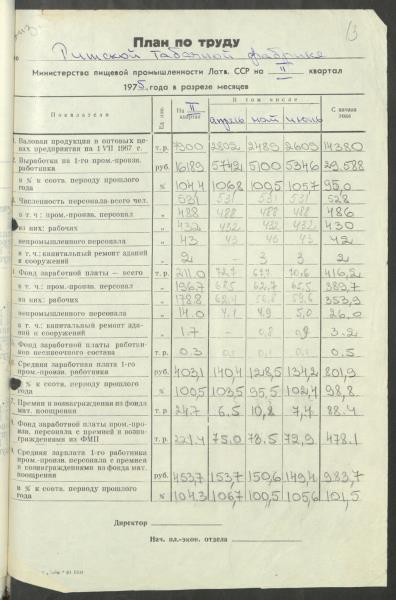 13
План по труду
Рижской Табачной фабрике
Министерства пищевой промышленности Латв. ССР на II квартал
1975 года в разрезе месяцев
Показатели Ед. изм. На II квартал В том числе С начала года
апрель май июнь
1. Валовая продукция в оптовых ценах предприятия на 1 VII 1967 г. т.р. 7900 2802 2489 2609 14380
Выработка на 1-го пром.-произв. работника руб. 16189 5742 5100 5346 29.588
в % к соотв. периоду прошлого года % 104,4 106,8 100,5 105,7 95,0
Численность персонала-всего чел. " 531 531 531 531 528
в т. ч.: пром.-произв. персонал " 488 488 488 488 486
из них: рабочих " 432 432 432 432 430
непромышленного персонала " 43 43 43 43 42
в т. ч.: капитальный ремонт зданий и сооружений " 2 - 3 3 2
Фонд заработной платы — всего т.р. 211.0 72,7 67,7 70,6 416,2
в т. ч.: пром.-произв. персонал " 196.7 68,5 62,7 65,5 389,7
из них: рабочих " 178.8 56,8 59,6 353,9
непромышленного персонала " 14.0 4,1 4,9 5,0 26,0
в т. ч.: капитальный ремонт зданий и сооружений " 1.7 - 0,8 0,9 3.2
Фонд заработной платы работников несписочного состава т.р. 0.3 0,1 0,1 0,1 0.5
Средняя заработная плата 1-го пром.-произв. работника руб. 403,1 140,4 128,5 134,2 801,9
в % к соотв. периоду прошлого года % 100,5 103,5 95,5 102,4 98,8
Премии и вознаграждения из фонда мат. поощрения т.р. 24,7 6.5 10,8 7,4 88.4
Фонд заработной платы пром.-произв. персонала с премией и вознаграждениями из ФМП т.р. 221.4 75.0 73,5 72,9 478.1
Средняя зарплата 1-го работника пром.-произв. персонала с премией и вознаграждениями из фонда мат. поощрения руб. 453,7 153,7 150,6 149,4 983,7
в % к соотв. периоду прошлого года % 104.3 106,7 100,5 105,6 101,5
Директор
Нач. пл.-экон. отдела